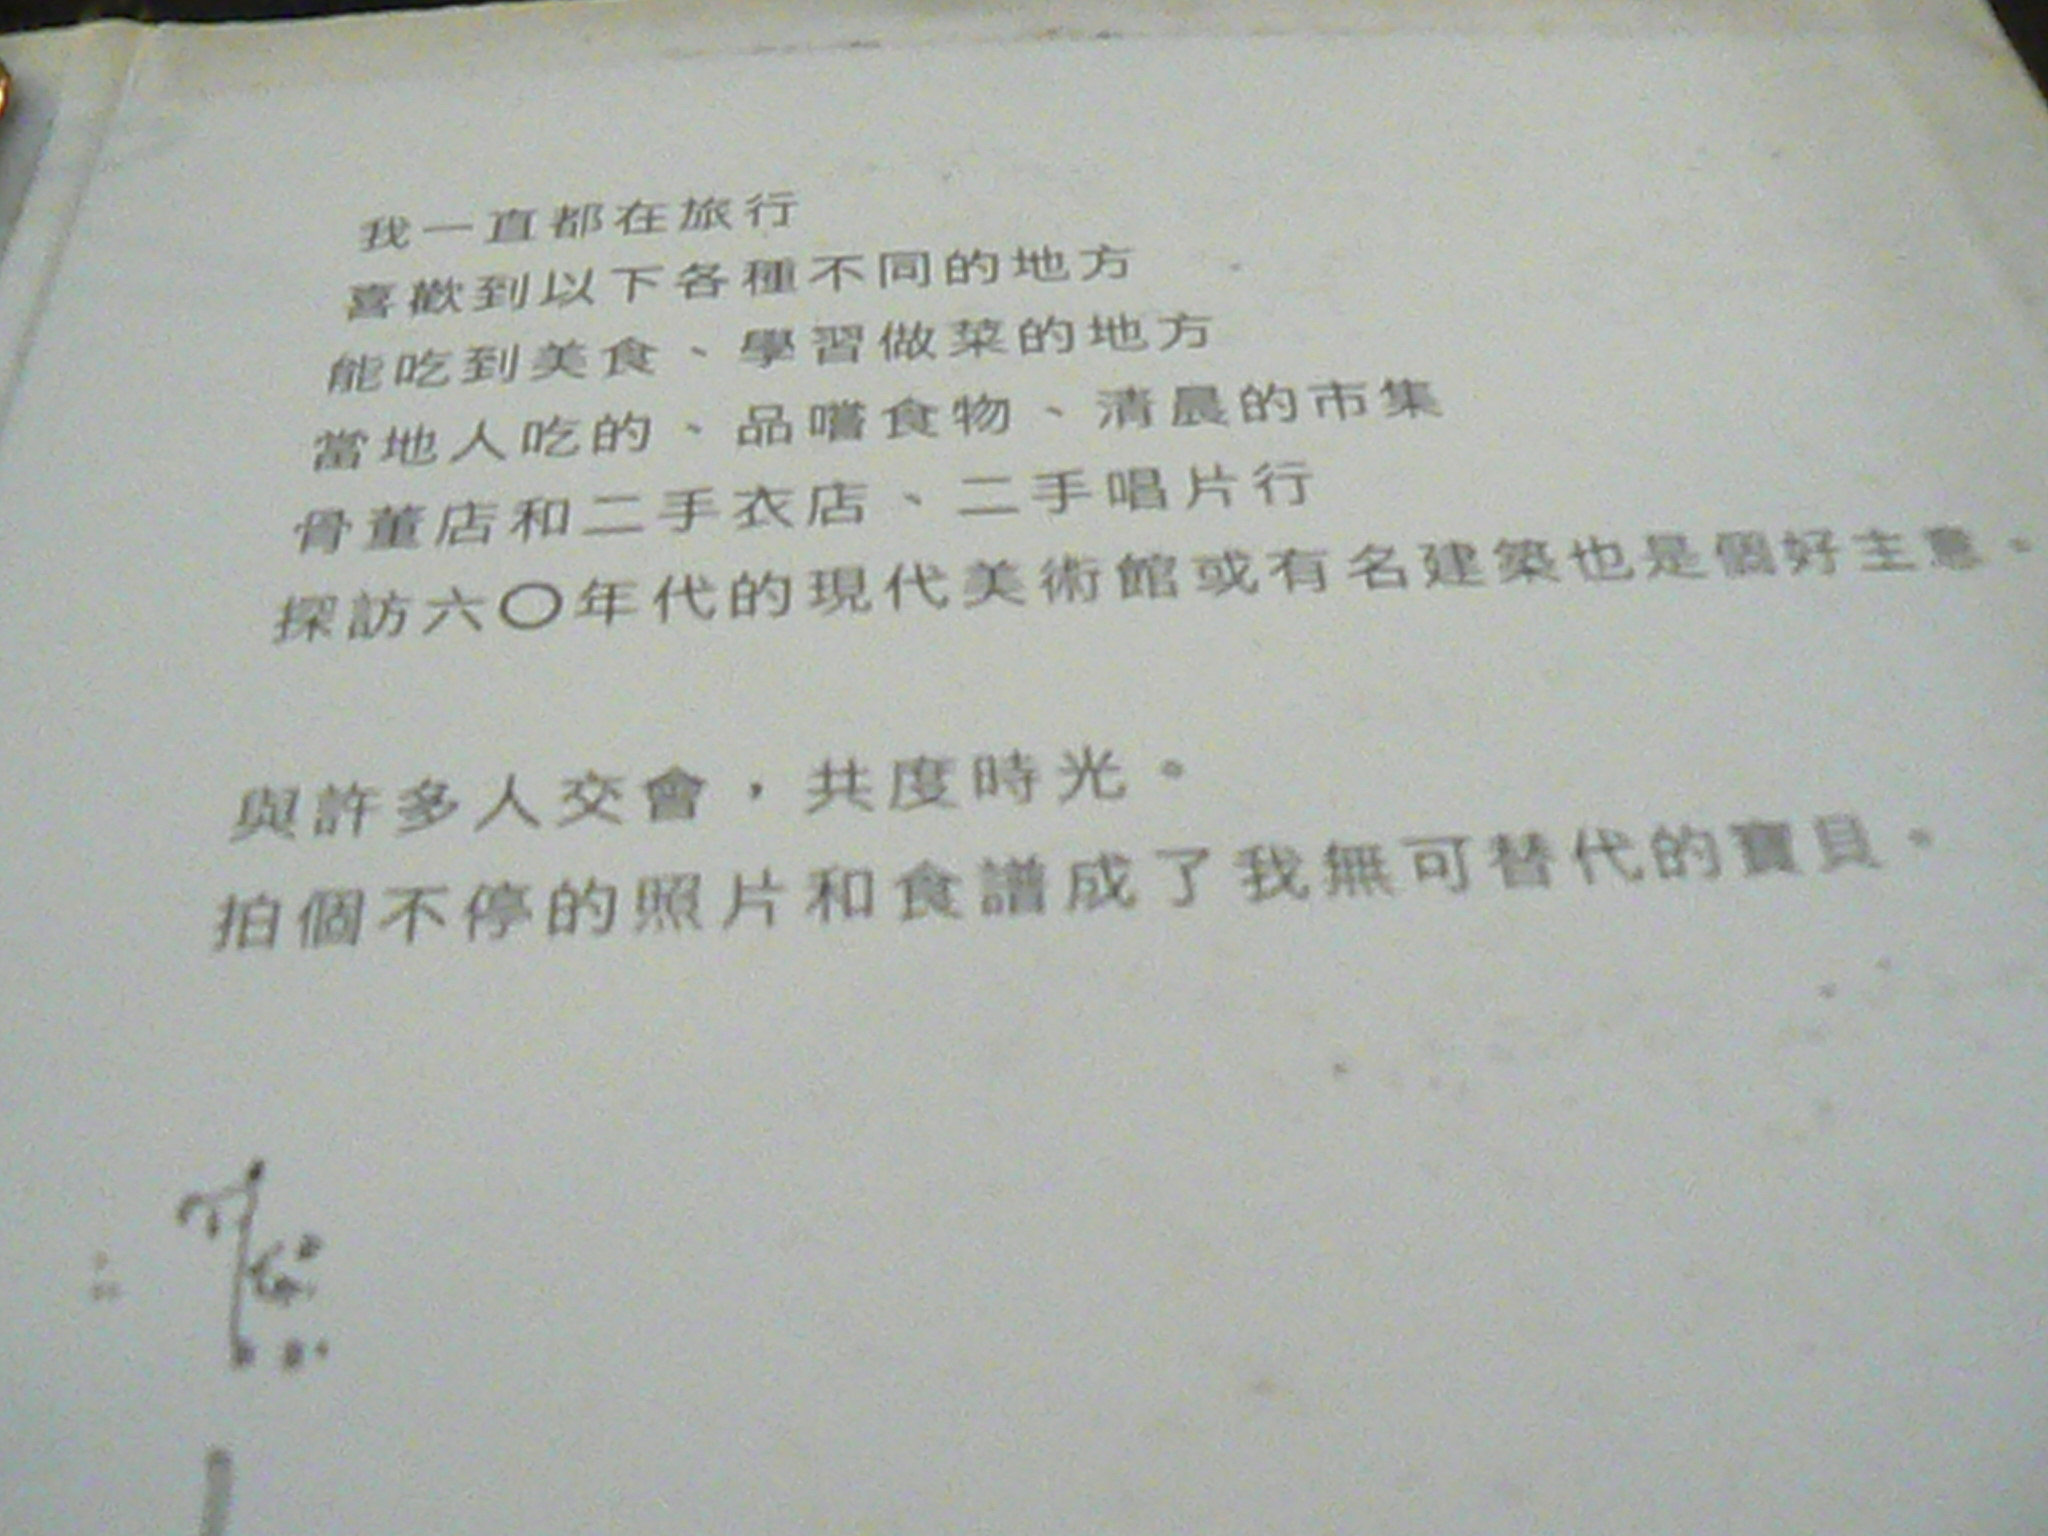 我一直都在旅行
喜歡到以下各種不同的地方
能吃到美食、學習做菜的地方
當地人吃的、品嚐食物、清晨的市集
骨董店和二手衣店、二手唱片行
探訪六〇年代的現代美術館或有名建築也是個好主意。
與許多人交會，共度時光。
拍個不停的照片和食譜成了我無可替代的寶貝。